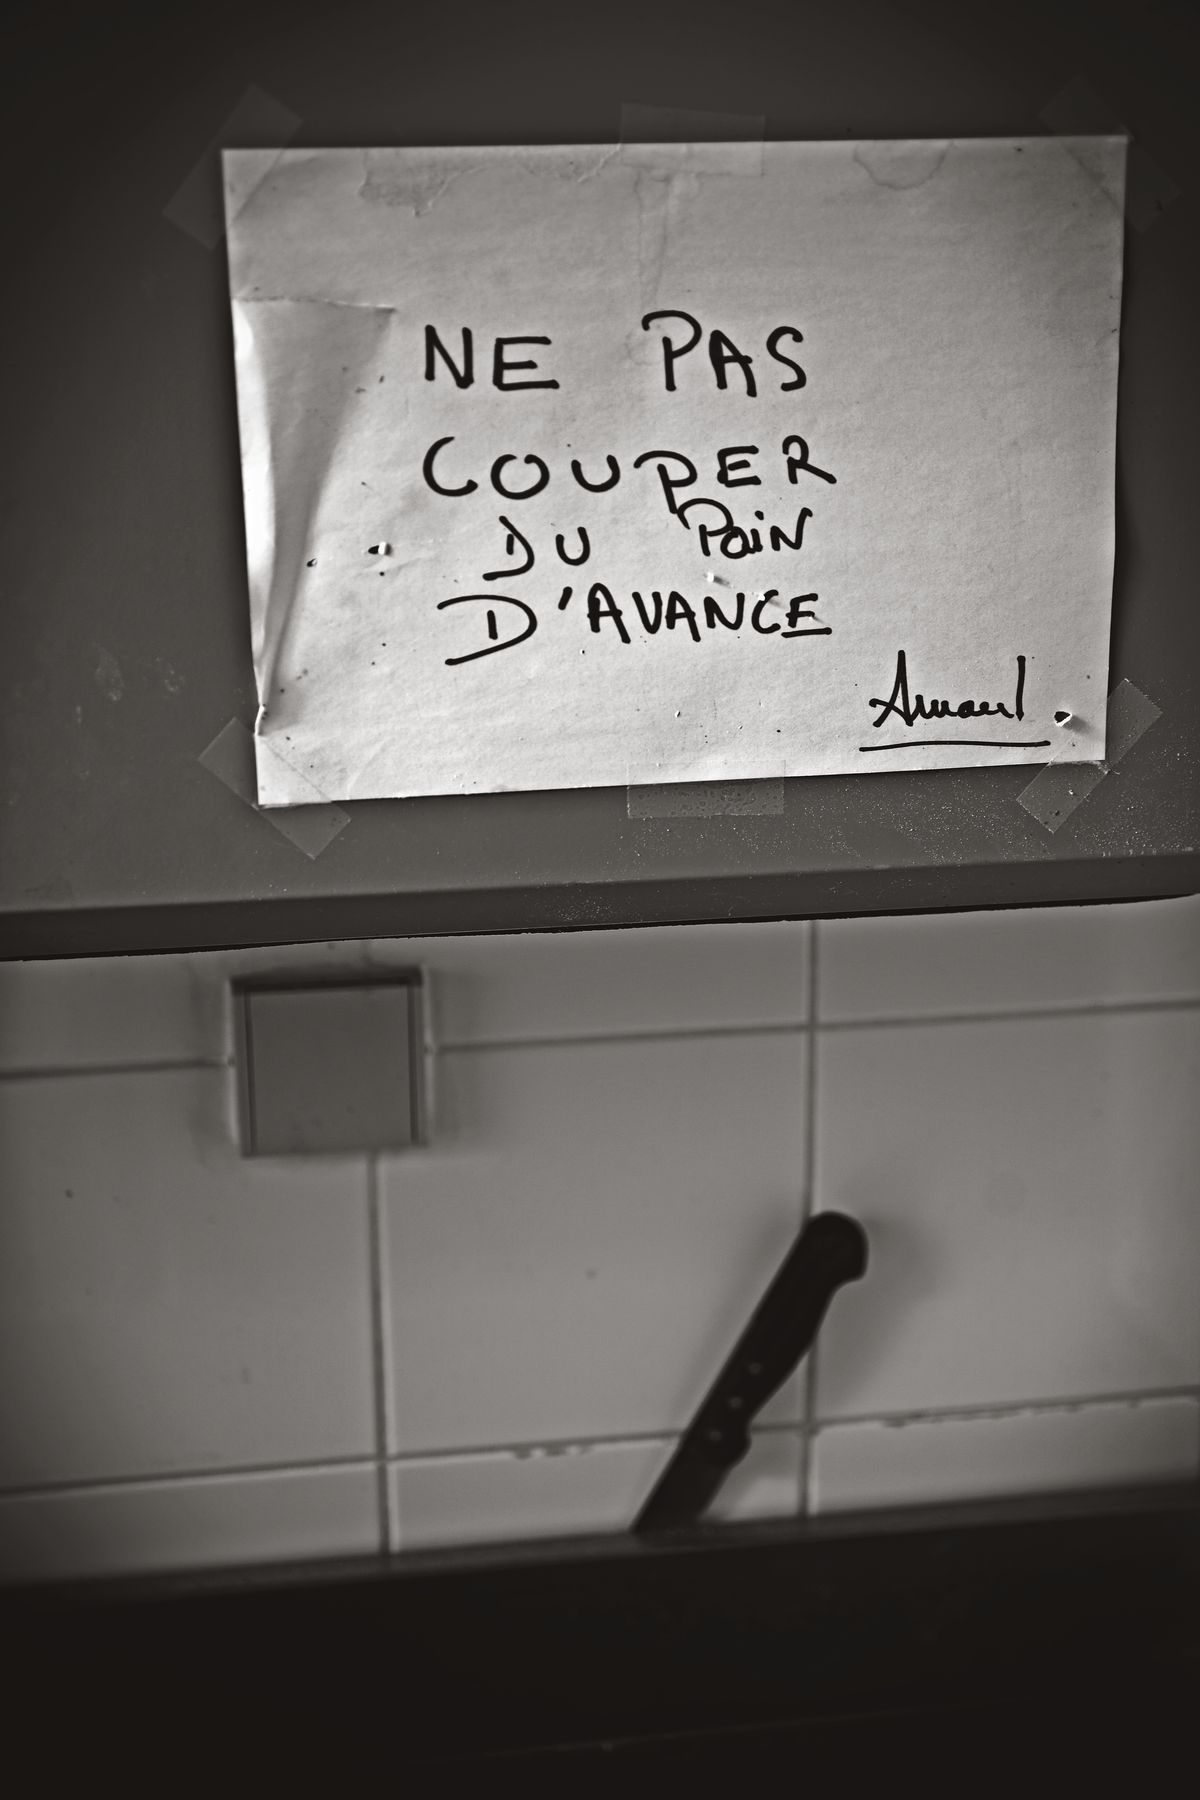 NE PAS
COUPER
DU PaiN
D'AVANCE
Arnaud.